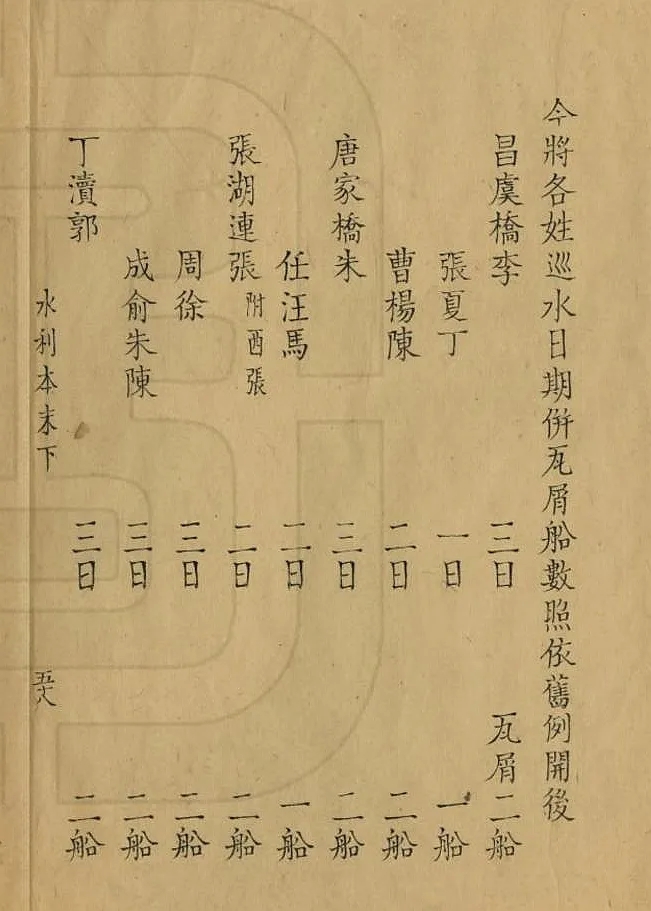 今將各姓巡水日期併瓦屑船數照依舊例開後
昌虞橋李 三日 瓦屑二船
張夏丁 一日 一船
曹楊陳 二日 二船
唐家橋朱 三日 二船
任汪馬 二日 一船
張湖連張附酉張 二日 二船
周徐 三日 二船
成俞朱陳 三日 二船
丁瀆郭 三日 二船
水利本末下 五十八